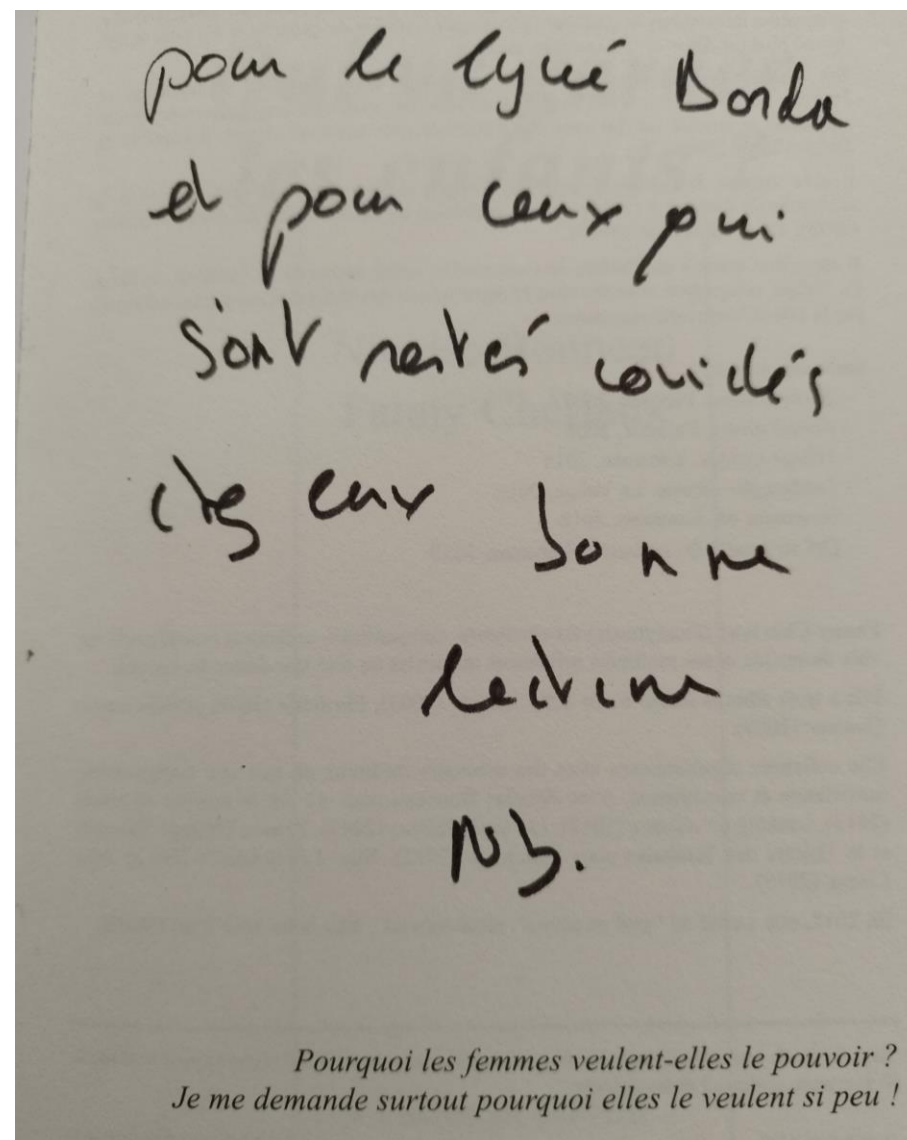 pour le lycée Borda
et pour ceux qui
sont restés covidés
chez eux bonne
lecture
NB.
Pourquoi les femmes veulent-elles le pouvoir ?
Je me demande surtout pourquoi elles le veulent si peu !